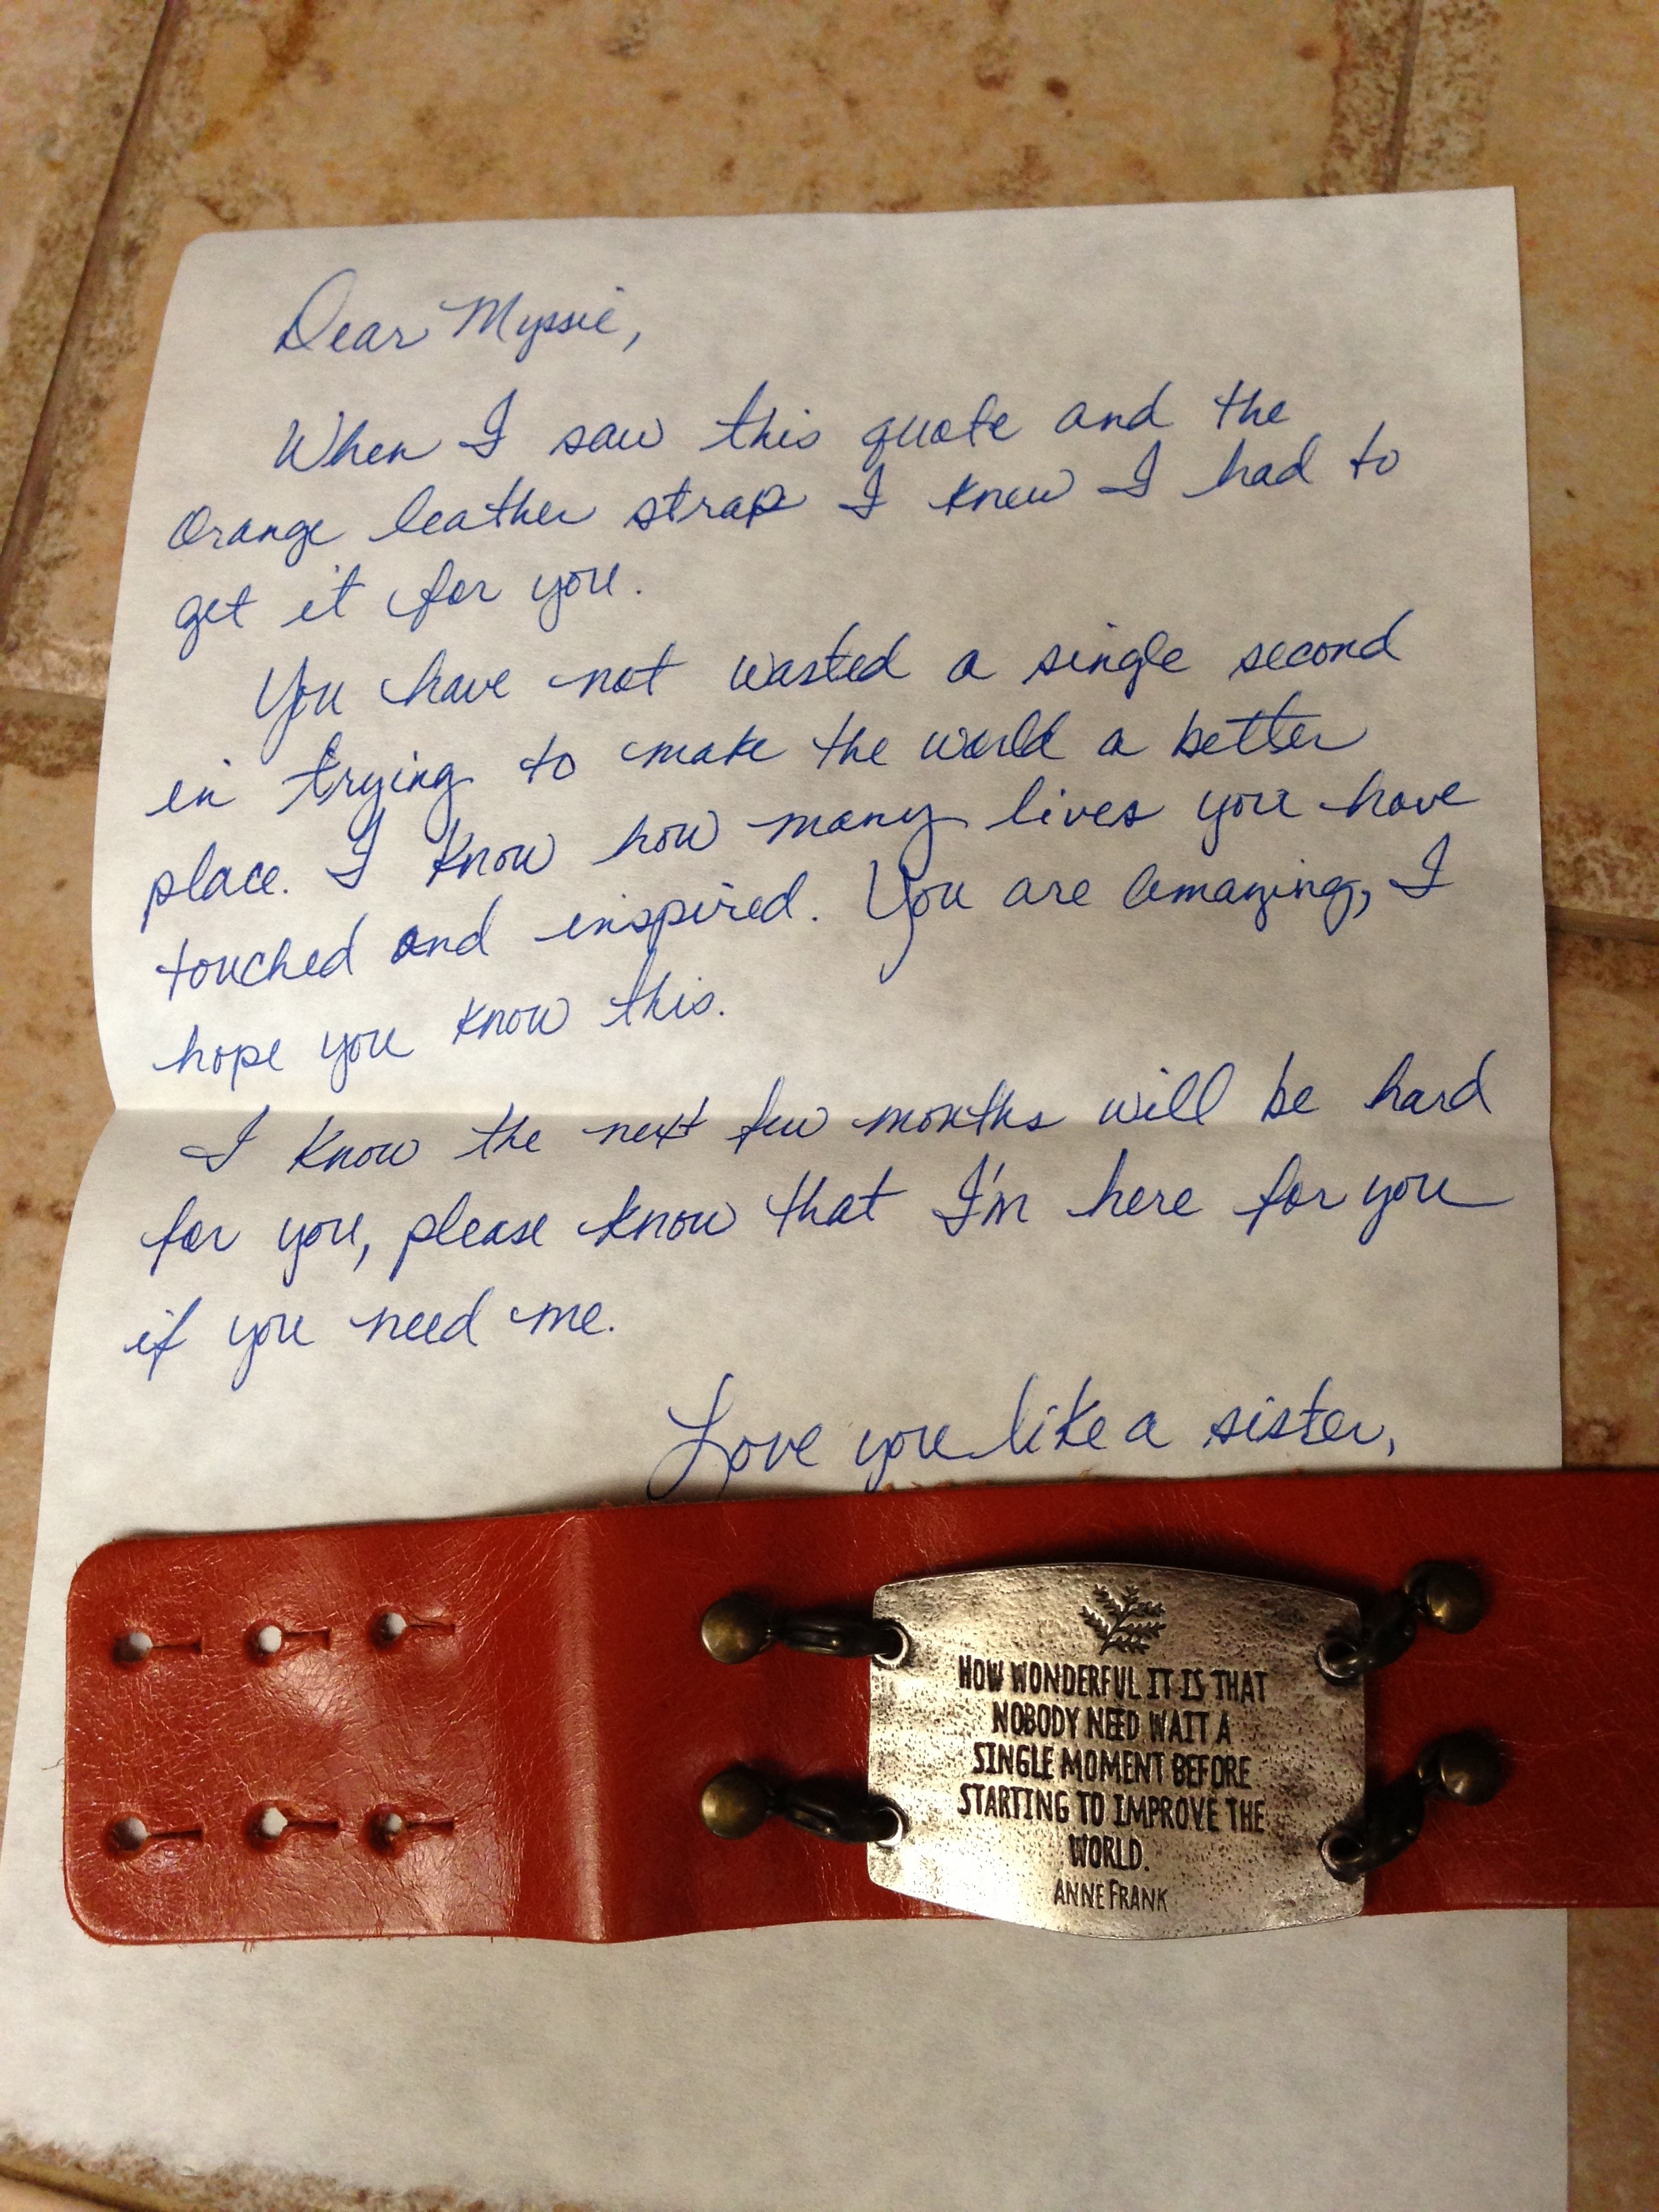 Dear Myssie,
When I saw this quote and the
Orange leather strap I knew I had to
get it for you.
You have not wasted a single second
in trying to make the world a better
place. I know how many lives you have
touched and inspired. You are amazing, I
hope you know this.
I know the next few months will be hard
for you, please know that I'm here for you
if you need me.
Love you like a sister,
HOW WONDERFUL IT IS THAT
NOBODY NEED WAIT A
SINGLE MOMENT BEFORE
STARTING TO IMPROVE THE
WORLD.
ANNE FRANK